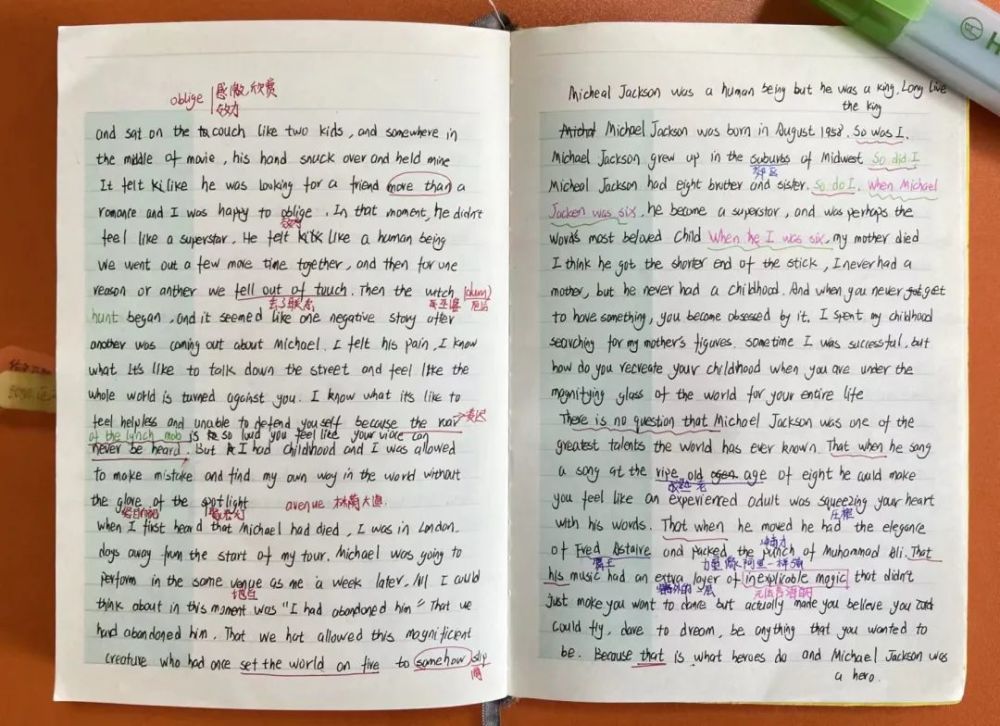 oblige 感激,欣赏
效力
and sat on the couch like two kids, and somewhere in
the middle of movie, his hand snuck over and held mine
It felt like he was looking for a friend more than a
romance and I was happy to oblige. In that moment, he didn't
效力
feel like a superstar. He felt like a human being
We went out a few more time together, and then for one
reason or anther we fell out of touch. Then the witch
去了联系
hunt began, and it seemed like one negative story after
another was coming out about Michael. I felt his pain, I know
what its like to talk down the street and feel like the
whole world is turned against you. I know what its like to
feel helpless and unable to defend youself because the roar
of the lynch mob is so loud you feel like your voice can
never be heard. But I had childhood and I was allowed
to make mistake and find my own way in the world without
the glare of the spotlight avenue 林荫大道.
when I first heard that Michael had died, I was in London.
days away from the start of my tour. Michael was going to
perform in the same venue as me a week later. All I could
地点
think about in this moment was "I had abandoned him" That we
had abandoned him. That we hot allowed this magnificent
creature who had once set the world on fire to somehow slip
Micheal Jackson was a human being but he was a king, Long Live
the king
Michael Jackson was born in August 1958. So was I.
Michael Jackson grew up in the suburbs of Midwest So did I
郊区
Micheal Jackson had eight bruther and sister. So do I. When Michael
Jacken was six, he become a superstar, and was perhaps the
words most beloved child When he I was six, my mother died
I think he got the shorter end of the stick, I never had a
mother, but he never had a childhood. And when you never get
to have something, you become obsessed by it. I spent my childhood
searching for my mother's figures. sometime I was successful, but
how do you recreate your childhood when you are under the
magnifying glass of the world for your entire life
There is no question that Michael Jackson was one of the
greatest talents the world has ever known. That when he song
a song at the ripe old age of eight he could make
you feel like an experienced adult was squeezing your heart
压榨
with his words. That when he moved he had the elegance
of Fred Astaire and packed the punch of Muhammad Ali. That
力量像阿里一样强
his music had an extra layer of inexplicable magic that didn't
额外的一层 无法言语的
just make you want to dance but actually made you believe you
could fly, dare to dream, be anything that you wanted to
be. Because that is what heroes do and Michael Jackson was
a hero.